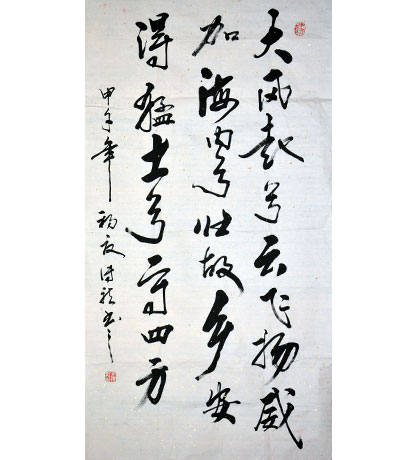 大风起兮云飞扬威
加海内兮归故乡安
得猛士兮守四方
甲午年初夏书